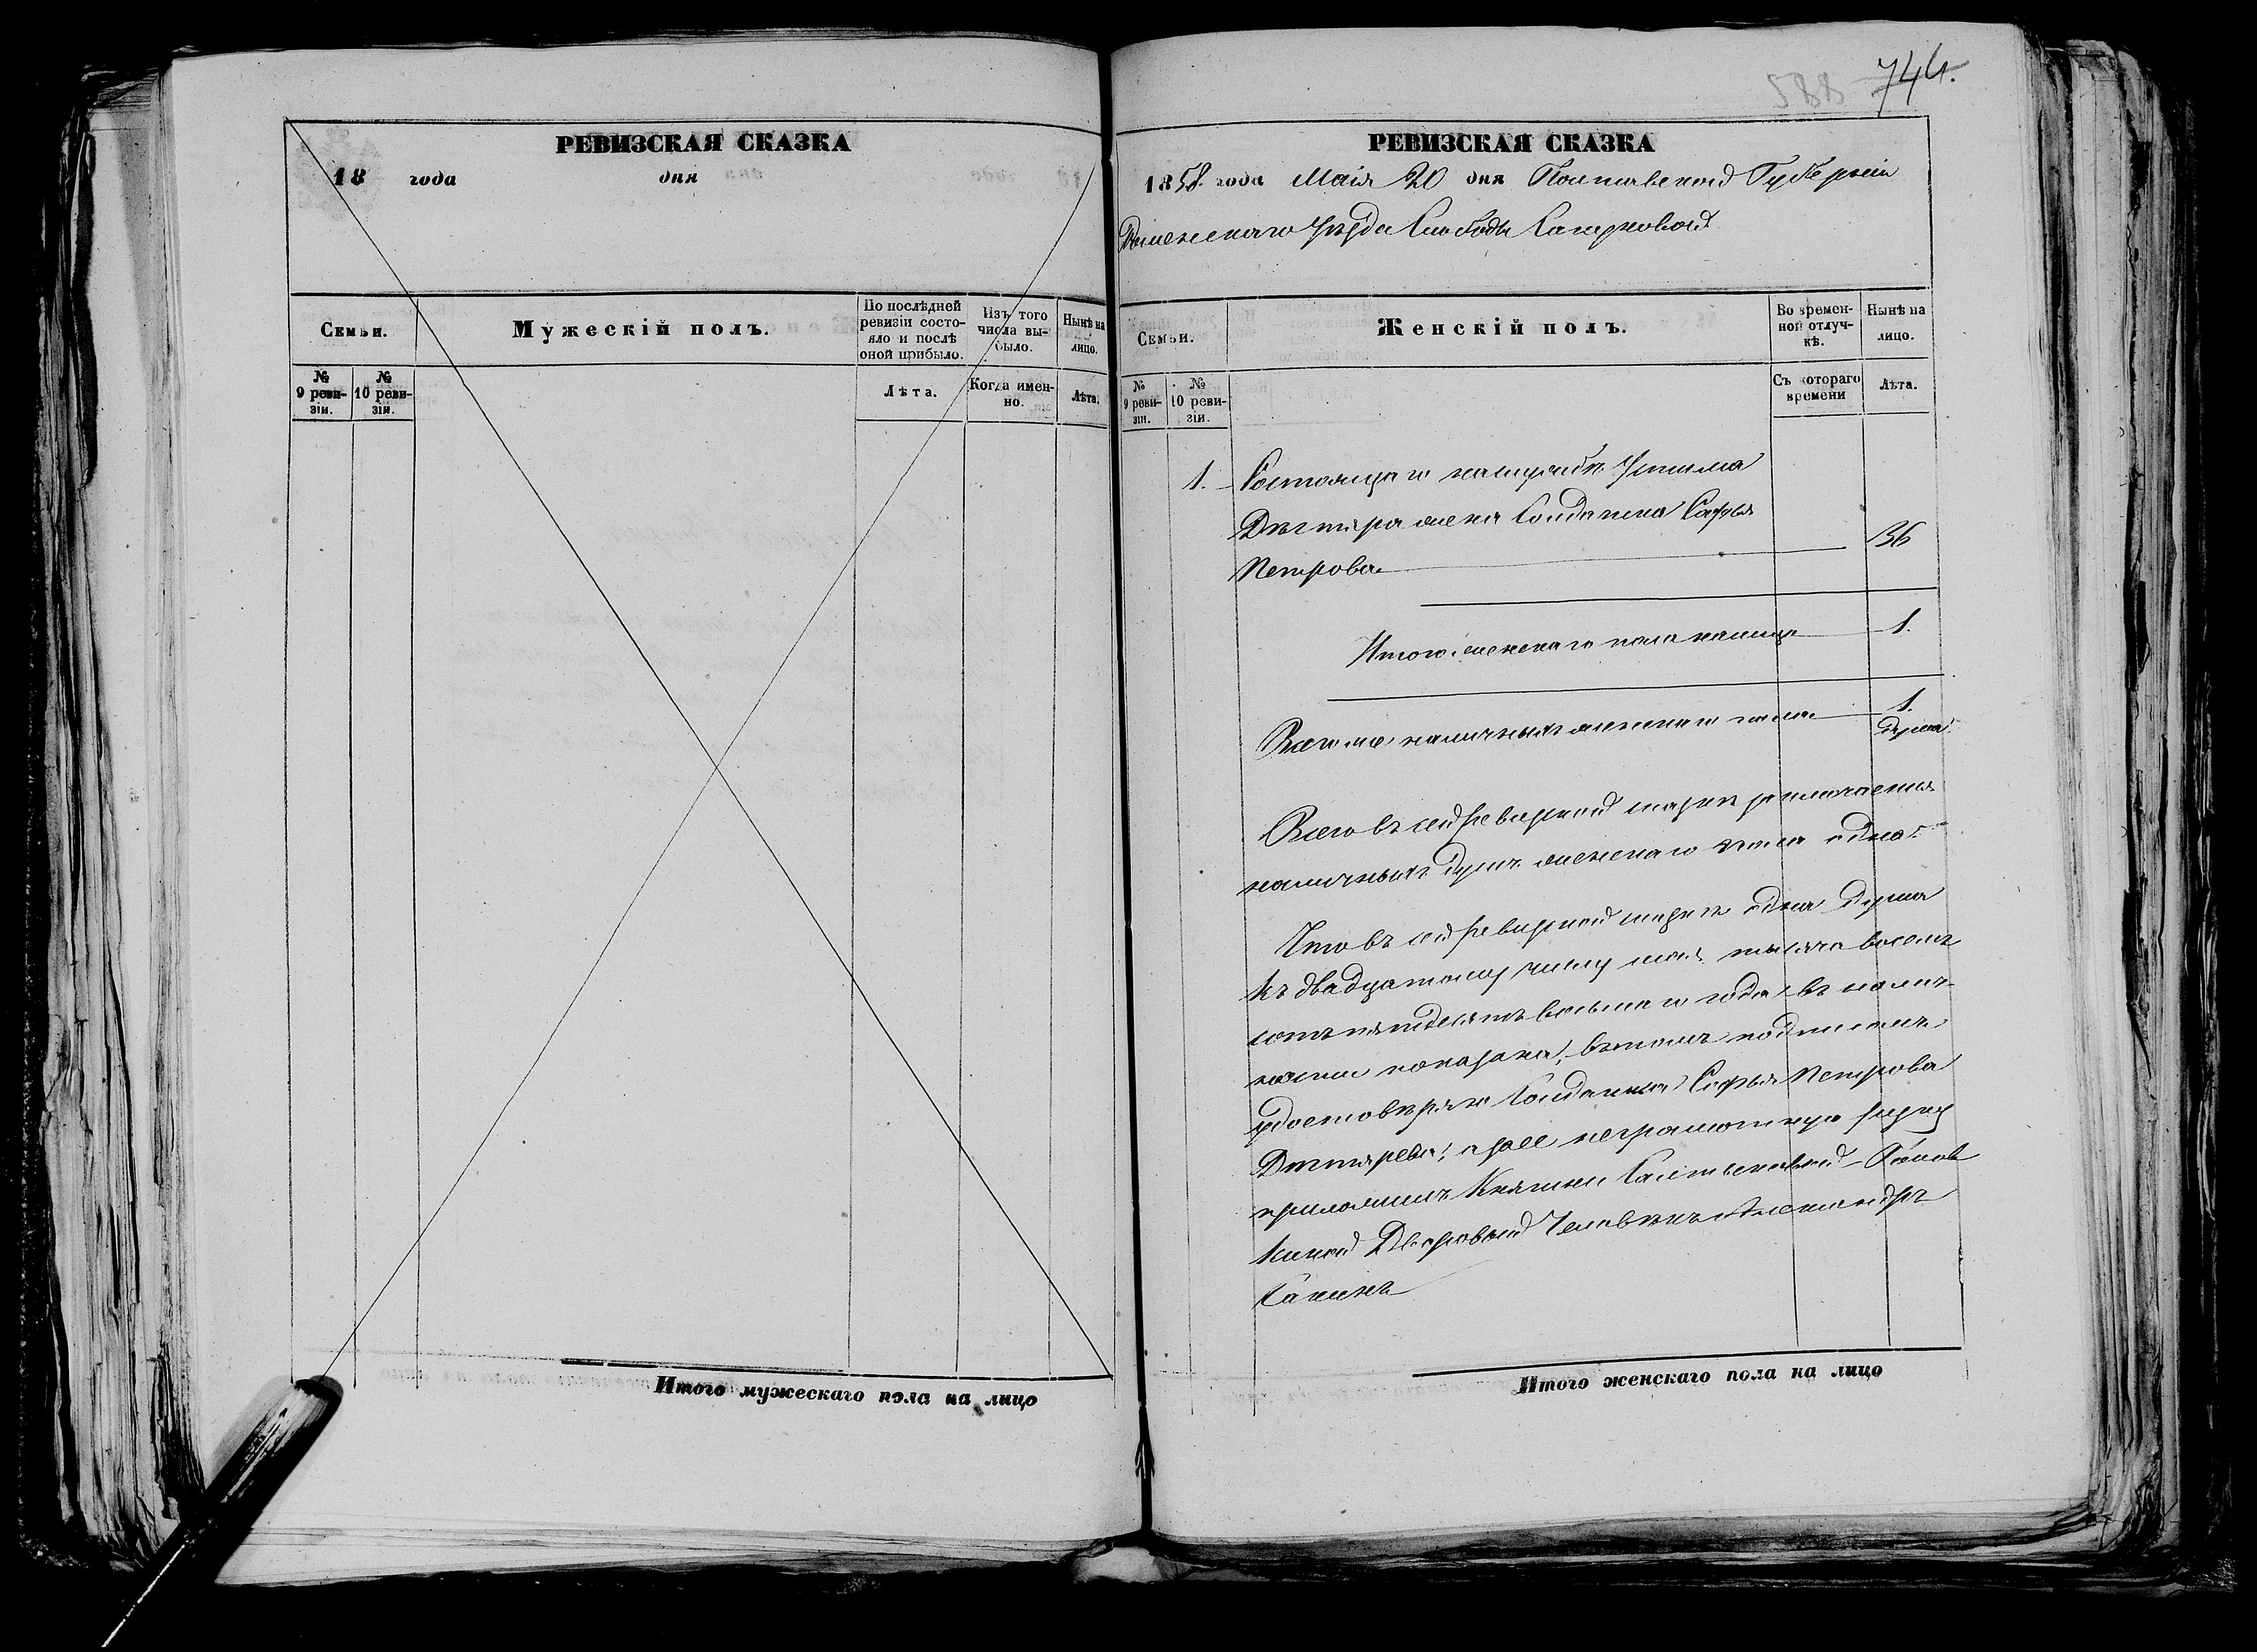 588 744.
РЕВИЗСКАЯ СКАЗКА
18 года дня
Семьи.
Мужескій полъ.
По послѣдней ревизіи состояло и послѣ оной прибыло.
Изъ того числа выбыло.
Нынѣ на лицо.
№ 9 ревизіи.
№ 10 ревизіи.
Лѣта.
Когда именно.
Лѣта.
Итого мужескаго пола на лицо
РЕВИЗСКАЯ СКАЗКА
1858 года Маія 20 дня Полтавской Губерніи
Роменскаго Уѣзда Слободы
Семьи.
Женскій полъ.
Во временной отлучкѣ.
Нынѣ на лицо.
№ 9 ревизіи.
№ 10 ревизіи.
Съ котораго времени
Лѣта.
1. Состоящаго на службѣ
жена Солдатка Софья
Петрова 36
Итого женскаго пола налицо 1.
Всего же наличныхъ женскаго пола 1.
душа
Всего въ сей ревизской сказкѣ заключается
наличныхъ душъ женскаго пола одна
Что въ сей ревизской сказкѣ одна душа
къ двадцатому числу маія тысяча восемь
сотъ пятдесятъ восьмаго года въ налич-
ности показана, въ томъ подписомъ
удостовѣряю Солдатка Софья Петрова
Дегтярева, а за ее неграмотную руку
приложилъ Княгини
Дворовый Человѣкъ Александръ